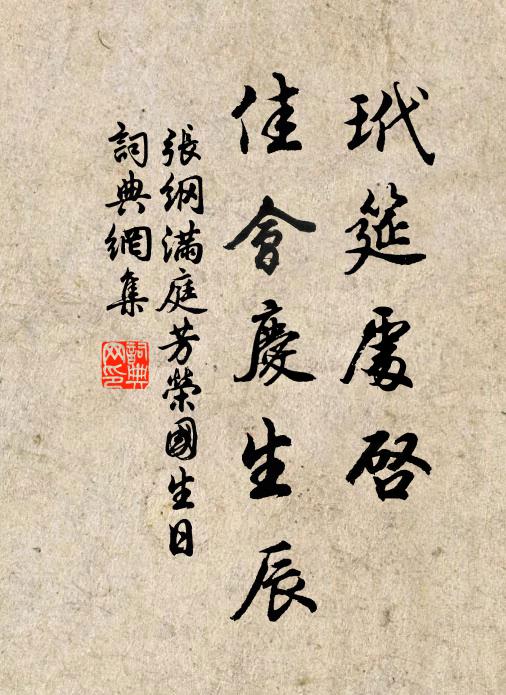 玳筵處啓
佳會慶生辰
張綱滿庭芳榮國生日
詞典網集
詞典網印